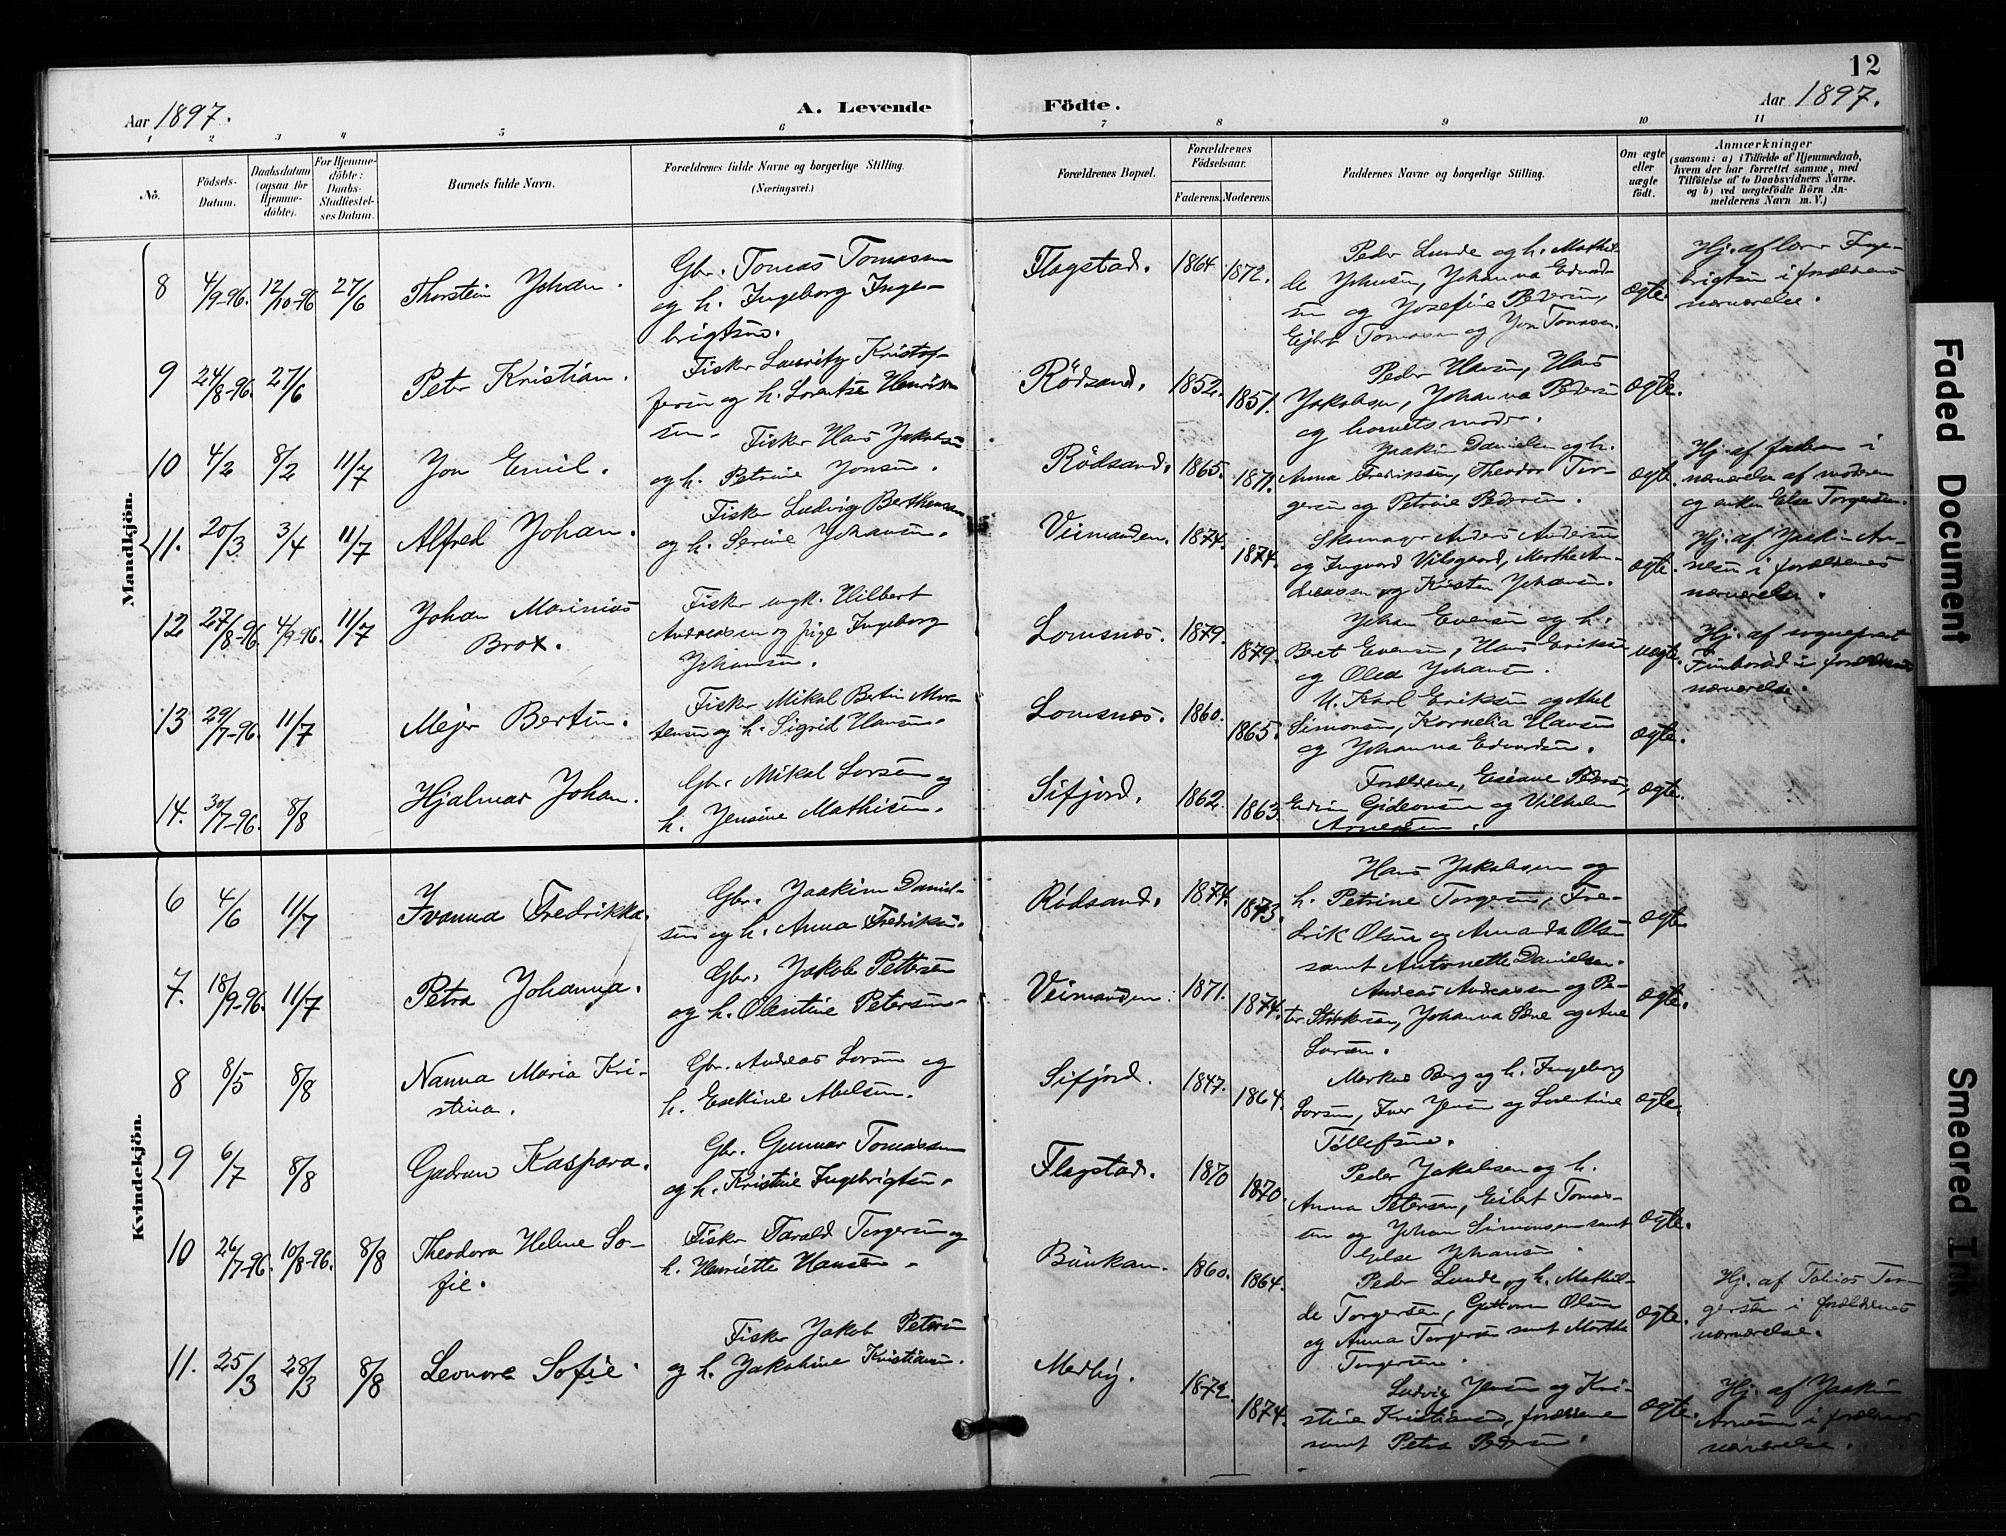 12
Aar 1897.
A. Levende Födte.
Aar 1897.
1 2 3 4 5 6 7 8 9 10 11
No.
Födsels-Datum.
Daabsdatum (ogsaa för Hjemmedöbte).
For Hjemmedöbte: Daabs-Stadfæstelses Datum.
Barnets fulde Navn.
Forældrenes fulde Navne og borgerlige Stilling.
(Næringsvei.)
Forældrenes Bopæl.
Forældrenes Födselsaar.
Faderens. Moderens.
Faddernes Navne og borgerlige Stilling.
Om ægte eller uægte födt.
Anmærkninger
(saasom: a) i Tilfælde af Hjemmedaab, hvem der har forrettet samme, med Tilföielse af to Daabsvidners Navne, og b) ved uægtefödte Börn Anmelderens Navn m. V.)
Mandkjön.
8 4/9-96. 12/10-96 27/6 Thorstein Johan. Gbr. Tomas Tomassen
og h. Ingeborg Inge-
brigtsen.
Flagstad. 1864 1872. Peder Lunde og h. Mathil-
de Johnsen, Johanna Edvard-
sen og Josefine Pedersen,
Eilert Tomassen og Jon Tomassen.
ægte. Hj. af lærer Inge-
brigtsen i forældrenes
nærværelse.
9 24/8-96. 27/6 Peter Kristian. Fisker Lauritz Kristof-
fersen og h. Lorentse Henrik-
sen.
Rödsand. 1852. 1851. Peder Hansen, Hans
Jakobsen, Johanna Pedersen
og barnets moder.
ægte.
10 4/2 8/2 11/7 Jon Emil. Fisker Hans Jakobsen
og h. Petrine Jonsen.
Rödsand. 1865. 1871. Joakim Danielsen og h.
Anna Fredriksen, Theodor Tor-
gersen og Petrine Pedersen.
ægte. Hj. af faderen i
nærværelse af moderen
og enken Else Torgersen.
11. 20/3 3/4 11/7 Alfred Johan. Fisker Ludvig Berthensen
og h. Serine Johansen.
Veimanden. 1874. 1874. Skomager Anders Andersen
og Ingvard Vilsgaard, Marthe An-
dreassen og Kristen Johansen.
ægte. Hj. af Joakim Ar-
nesen i forældrenes
nærværelse.
12 27/8-96 4/9-96. 11/7 Johan Marinius
Brox.
Fisker ungk. Hilbert
Andreassen og pige Ingeborg
Johansen.
Lomsnes. 1879. 1879. Johan Evensen og h.
Beret Evensen, Hans Eriksen
og Olea Johansen.
uægte. Hj. af sogneprest
i forældrenes
nærværelse.
13 29/7-96. 11/7 Mejer Bertin. Fisker Mikal Bertin Mor-
tensen og h. Sigrid Hansen.
Lomsnes. 1860. 1865. U. Karl Eriksen og
Simonsen, Kornelia Hansen
og Johanna Edvardsen.
ægte.
14. 30/7-96. 8/8 Hjalmar Johan. Gbr. Mikal Larsen og
h. Jensine Mathisen.
Sifjord. 1862. 1863. Forældrene, Pedersen,
Edvin Gideonsen og Vilhelm
Arnesen.
ægte.
Kvindekjön.
6 4/6 11/7 Ivanna Fredrikka. Gbr. Joakim Daniel-
sen og h. Anna Fredriksen.
Rödsand. 1874. 1873. Hans Jakobsen og
h. Petrine Torgersen, Fre-
drik Olsen og Amanda Olsen
samt Antonette Danielsen.
ægte.
7. 18/9-96. 11/7 Petra Johanna. Gbr. Jakob Pettersen
og h. Olentine Petersen.
Veimanden. 1871. 1874. Andreas Andreassen og Pe-
ter, Johanna og Ane
Larsen.
ægte.
8 8/5 8/8 Nanna Maria Kri-
stina.
Gbr. Andreas Larsen og
h. Eskine Abelsen.
Sifjord. 1847. 1864. Markus Berg og h. Ingeborg
Larsen, Iver Jensen og Lorentine
Tollefsen.
ægte.
9 6/7 8/8 Gudrun Kaspara. Gbr. Gunnar Tomassen
og h. Kristine Ingebrigtsen.
Flagstad. 1870 1870. Peder Jakobsen og h.
Anna Petersen, Eilert Tomas-
sen og Johan Simonsen samt
Else Johansen.
ægte.
10 26/7-96. 10/8-96. 8/8 Theodora Helene So-
fie.
Fisker Tarald Torgersen og
h. Henriette Hansen.
Bunkan. 1860. 1864. Peder Lunde og h. Mathil-
de Torgersen, Guttorm Olsen
og Anna Torgersen samt Marthe
Torgersen.
ægte. Hj. af Tobias Tor-
gersen i forældrenes
nærværelse.
11. 25/3 28/3 8/8 Leonore Sofie. Fisker Jakob Petersen
og h. Jakobine Kristiansen.
Medby. 1872. 1874. Ludvig Jensen og Kri-
stine Kristiansen, forældrene
samt Petra Pedersen.
ægte. Hj. af Joakim
Arnesen i forældrenes
nærværelse.
Faded Document
Smeared Ink